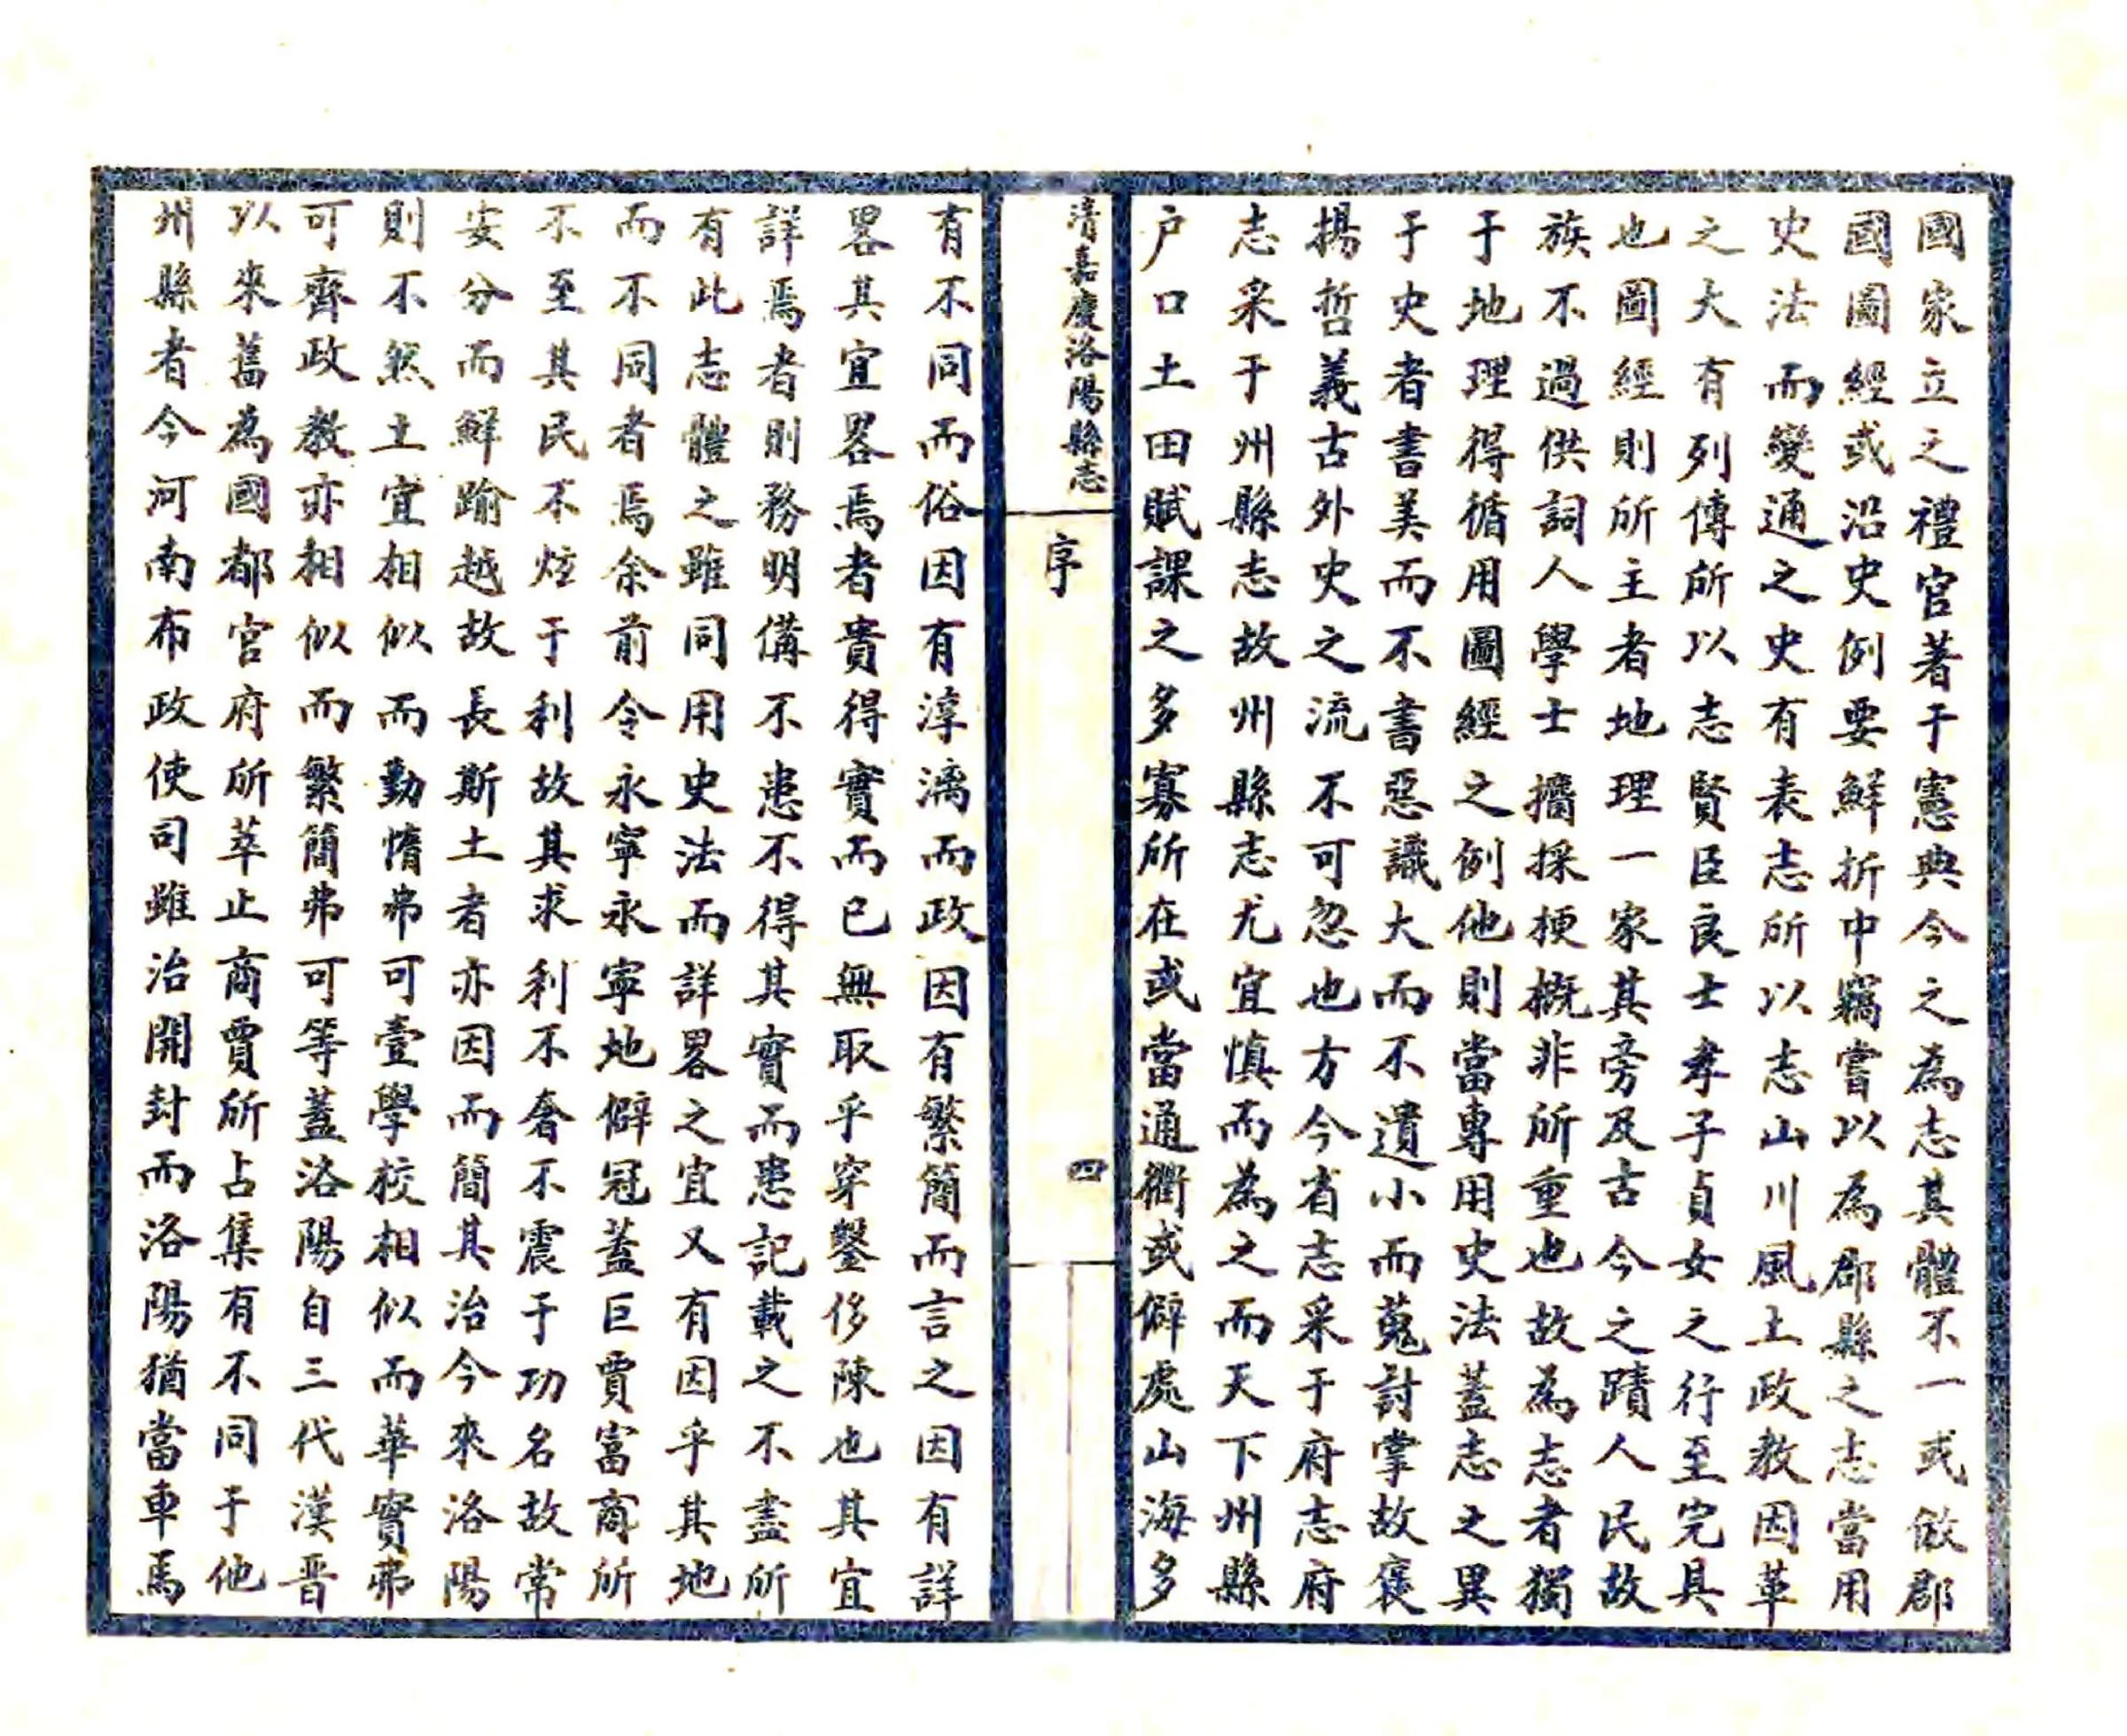 國家立之禮官著于憲典今之為志其體不一或倣郡
國圖經或沿史例要鮮折中竊嘗以為郡縣之志當用
史法而變通之史有表志所以志山川風土政教因革
之大有列傳所以志賢臣良士孝子貞女之行至完具
也圖經則所主者地理一家其旁及古今之蹟人民故
族不過供詞人學士擩採梗概非所重也故為志者獨
于地理得循用圖經之例他則當專用史法蓋志之異
于史者書美而不書惡識大而不遺小而蒐討掌故褒
揚哲義古外史之流不可忽也方今省志采于府志府
志采于州縣志故州縣志尤宜慎而為之而天下州縣
户口土田賦課之多寡所在或當通衢或僻處山海多
清嘉慶洛陽縣志
序
四
有不同而俗因有淳漓而政因有繁簡而言之因有詳
畧其宜畧焉者貴得實而已無取乎穿鑿侈陳也其宜
詳焉者則務明備不患不得其實而患記載之不盡所
有此志體之雖同用史法而詳畧之宜又有因乎其地
而不同者焉余前令永寧永寧地僻冠蓋巨賈富商所
不至其民不炫于利故其求利不奢不震于功名故常
安分而鮮踰越故長斯土者亦因而簡其治今來洛陽
則不然土宜相似而勤惰弗可壹學校相似而華實弗
可齊政教亦相似而繁簡弗可等蓋洛陽自三代漢晋
以來舊為國都宮府所萃止商賈所占集有不同于他
州縣者今河南布政使司雖治開封而洛陽猶當車馬